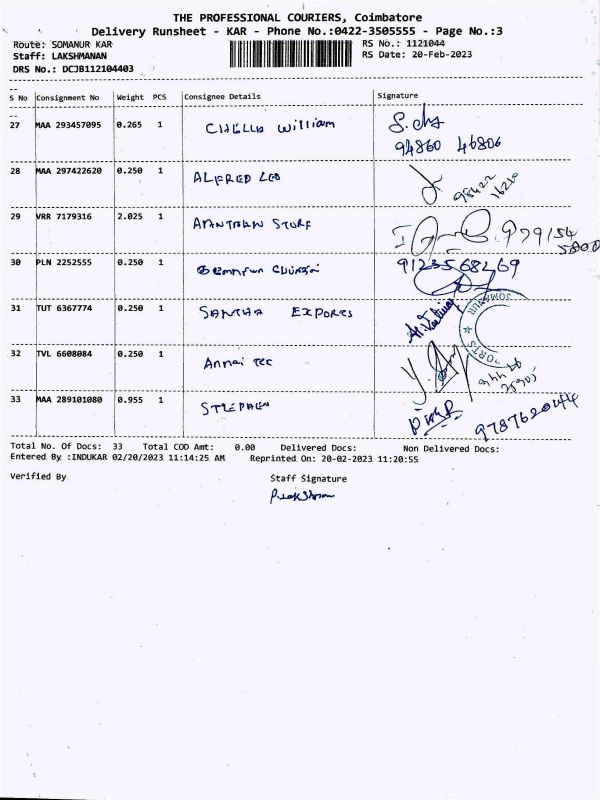 THE PROFESSIONAL COURIERS, Coimbatore
Delivery Runsheet - KAR - Phone No.:0422-3505555 - Page No.:3
Route: SOMANUR KAR RS No.: 1121044
Staff: LAKSHMANAN RS Date: 20-Feb-2023
DRS No.: DCJB112104403
S No Consignment No Weight PCS Consignee Details Signature
27 MAA 293457095 0.265 1 CHELLO William
94860 46806
28 MAA 297422620 0.250 1 ALFRED LEO
98422
16210
29 VRR 7179316 2.025 1 STORE 979154
30 PLN 2252555 0.250 1
9123568269
31 TUT 6367774 0.250 1 SANTHA EXPORTS
SOMANUR
32 TVL 6608084 0.250 1 Annai TEC
33 MAA 289101080 0.955 1 STEPHEN 9787620044
Total No. Of Docs: 33 Total COD Amt: 0.00 Delivered Docs: Non Delivered Docs:
Entered By :INDUKAR 02/20/2023 11:14:25 AM Reprinted On: 20-02-2023 11:20:55
Verified By Staff Signature